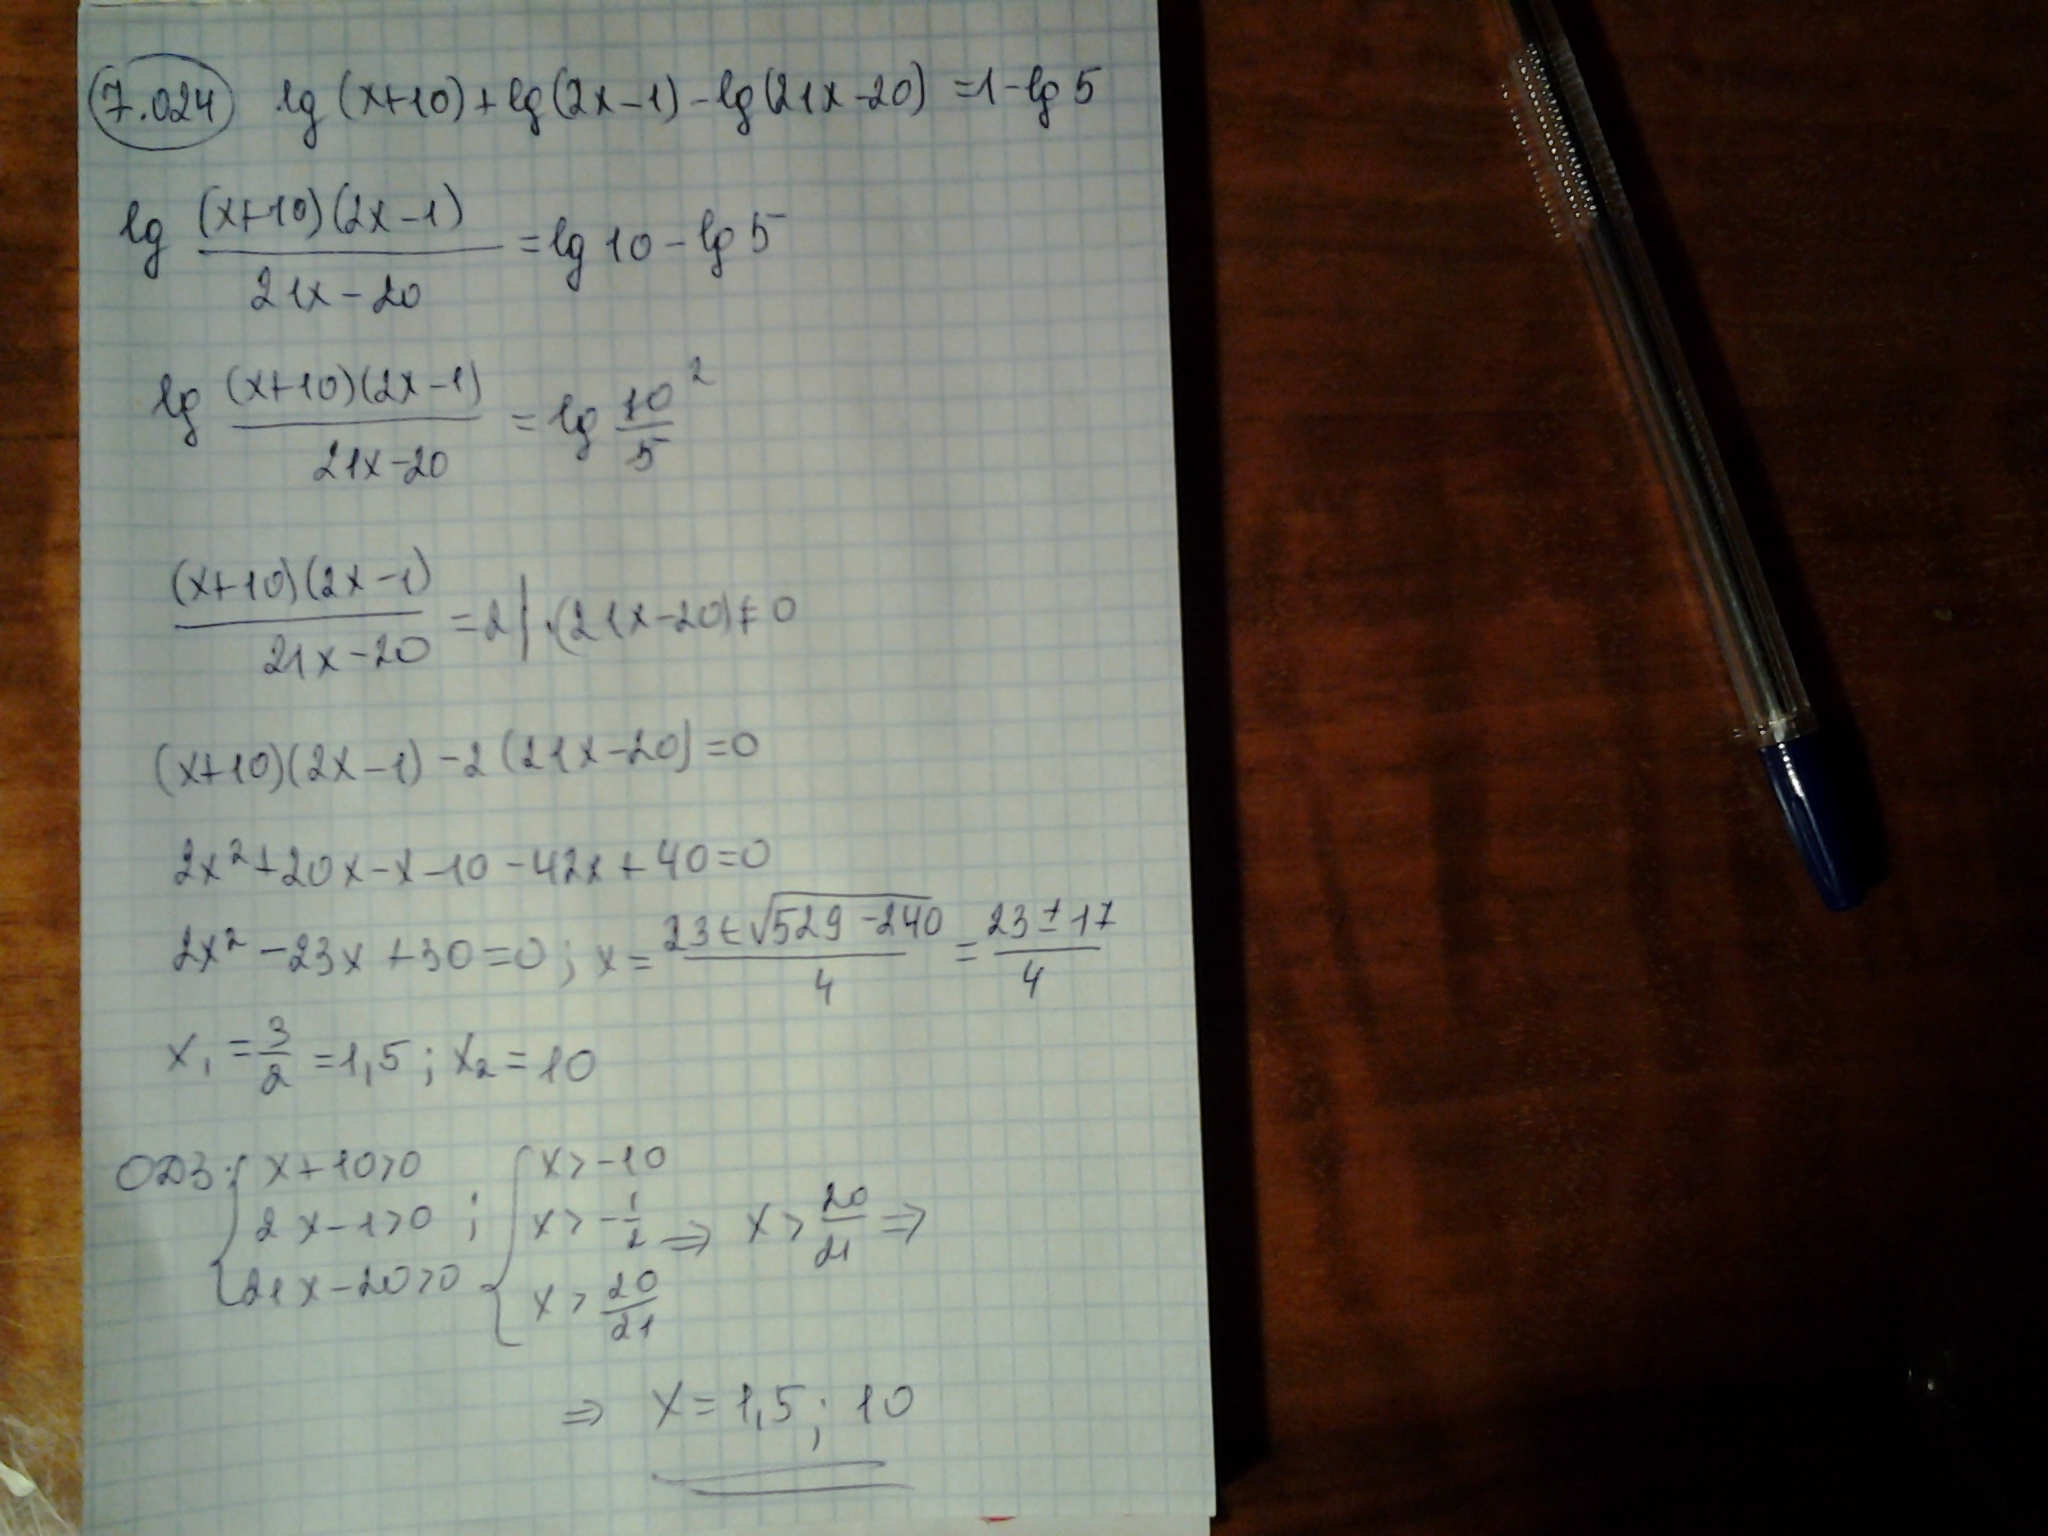 7.024 lg (x+10) + lg (2x-1) - lg (21x-20) = 1 - lg 5
lg (x+10)(2x-1) / 21x-20 = lg 10 - lg 5
lg (x+10)(2x-1) / 21x-20 = lg 10 / 5 2
(x+10)(2x-1) / 21x-20 = 2 | ·(21x-20) ≠ 0
(x+10)(2x-1) - 2 (21x-20) = 0
2x² + 20x - x - 10 - 42x + 40 = 0
2x² - 23x + 30 = 0 ; x = 23 ± √529 - 240 / 4 = 23 ± 17 / 4
x₁ = 3/2 = 1,5 ; x₂ = 10
ОДЗ: { x+10>0 ; { x > -10
2x-1>0 ; x > -1/2 ⇒ x > 20/21 ⇒
21x-20>0 x > 20/21
⇒ x = 1,5 ; 10